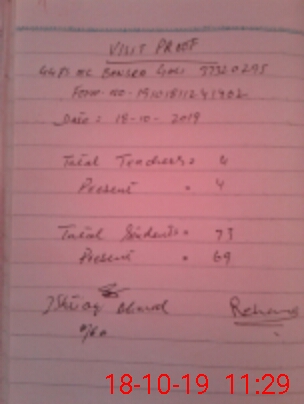 VISIT PROOF
GGPS MC BANSRA GALI 37320295
FORM-NO-191018112451402
Date: 18-10-2019
Total Teachers = 4
Present = 4
Total Students = 73
Present = 69
Ahmad
18-10-19 11:29